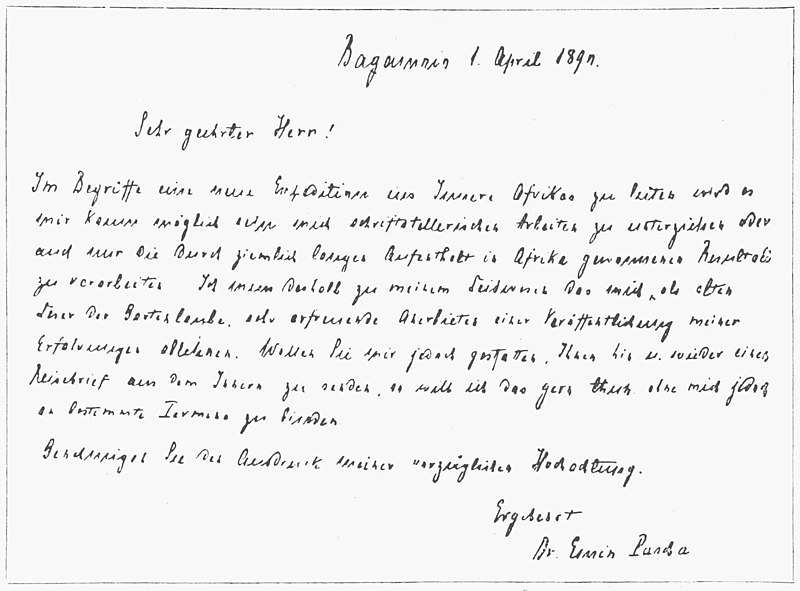 Bagamoio 1. April 1890.
Sehr geehrter Herr!
Im Begriffe eine neue Expedition ins Innere Afrikas zu leiten wird es
mir kaum möglich sein mich schriftstellerischen Arbeiten zu unterziehen oder
auch nur die durch ziemlich langen Aufenthalt in Afrika gewonnenen Resultate
zu verarbeiten Ich muss deshalb zu meinem Leidwesen das mich, als alten
Leser der Gartenlaube, sehr erfreuende Anerbieten einer Veröffentlichung meiner
Erfahrungen ablehnen. Wollen Sie mir jedoch gestatten, Ihnen hin u. wieder einen
Reisebrief aus dem Innern zu senden, so will ich das gern thun ohne mich jedoch
an bestimmte Termine zu binden
Genehmigen Sie den Ausdruck meiner vorzüglichen Hochachtung.
Ergebenst
Dr. Emin Pascha